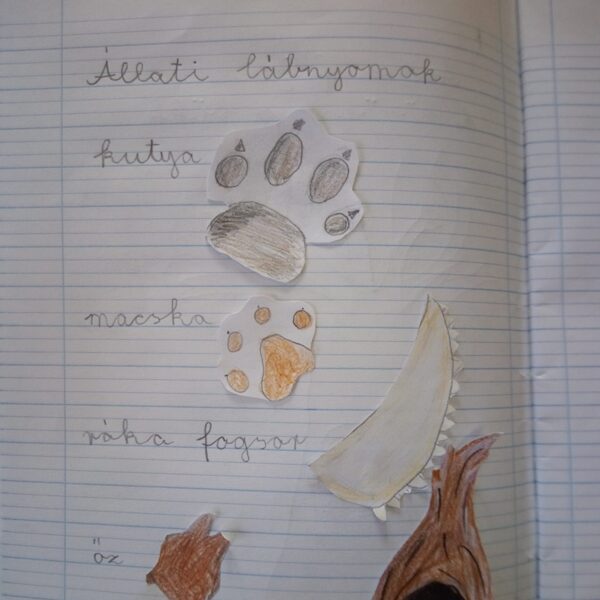 Állati lábnyomok
kutya
macska
róka fogsor
őz